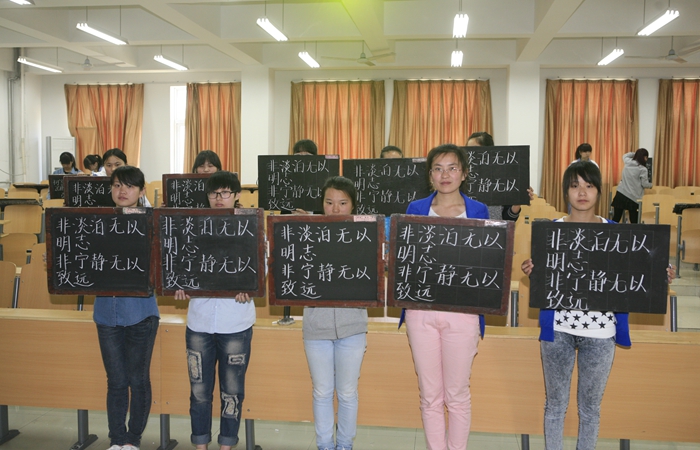 非淡泊无以
明志
非宁静无以
致远
非淡泊无以
明志
非宁静无以
致远
非淡泊无以
明志
非宁静无以
致远
非淡泊无以
明志
非宁静无以
致远
非淡泊无以
明志
非宁静无以
致远
非淡泊无以
明志
非宁静无以
非淡泊无以
明志
非宁静无以